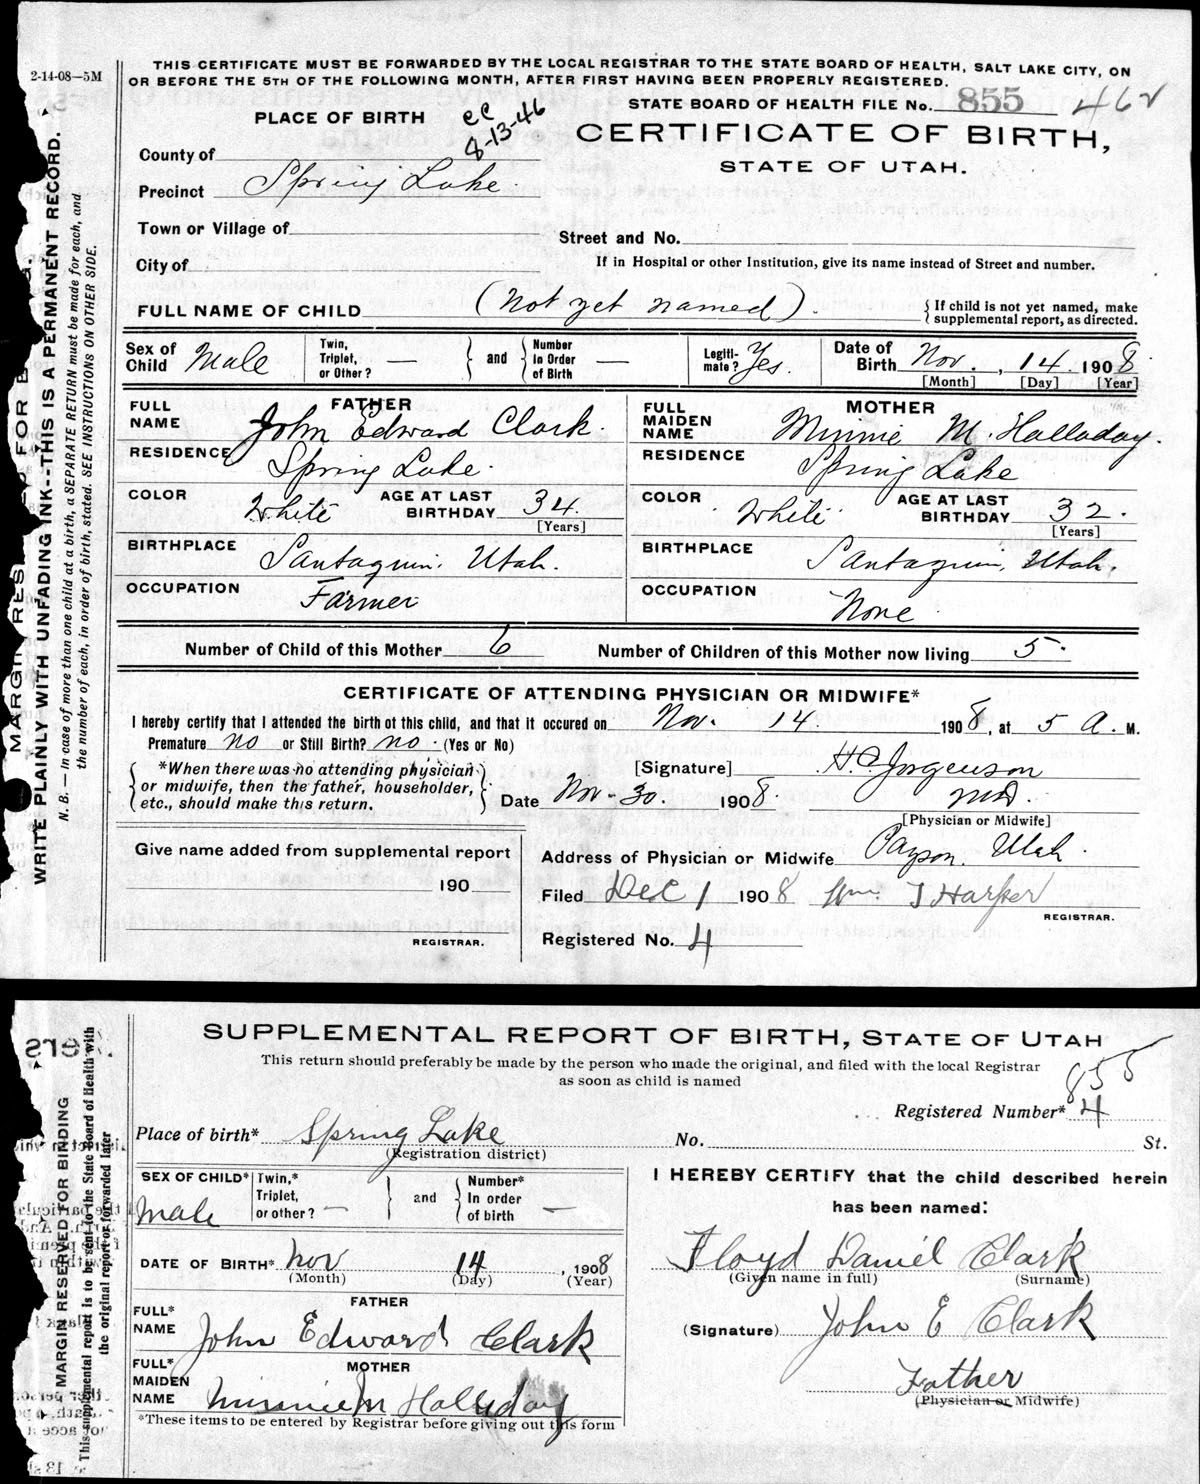 2-14-08—5M
THIS CERTIFICATE MUST BE FORWARDED BY THE LOCAL REGISTRAR TO THE STATE BOARD OF HEALTH, SALT LAKE CITY, ON
OR BEFORE THE 5TH OF THE FOLLOWING MONTH, AFTER FIRST HAVING BEEN PROPERLY REGISTERED.
STATE BOARD OF HEALTH FILE No. 855 462
PLACE OF BIRTH
8-13-46
CERTIFICATE OF BIRTH,
STATE OF UTAH.
County of
Precinct Spring Lake
Town or Village of
Street and No.
City of
If in Hospital or other Institution, give its name instead of Street and number.
FULL NAME OF CHILD (Not yet named) { If child is not yet named, make
supplemental report, as directed.
Sex of Child Male Twin, Triplet, or Other? — and Number In Order of Birth — Legiti-mate? Yes. Date of Birth Nov. 14 1908
[Month] [Day] [Year]
FATHER MOTHER
FULL NAME John Edward Clark. FULL MAIDEN NAME Minnie M. Halladay.
RESIDENCE Spring Lake. RESIDENCE Spring Lake
COLOR White AGE AT LAST BIRTHDAY 34. [Years] COLOR White AGE AT LAST BIRTHDAY 32. [Years]
BIRTHPLACE Santaquin, Utah. BIRTHPLACE Santaquin, Utah.
OCCUPATION Farmer OCCUPATION None
Number of Child of this Mother 6 Number of Children of this Mother now living 5.
CERTIFICATE OF ATTENDING PHYSICIAN OR MIDWIFE*
I hereby certify that I attended the birth of this child, and that it occured on Nov. 14. 1908, at 5 A. M.
Premature no or Still Birth? no. (Yes or No)
[Signature] H.C. Jorgenson
*When there was no attending physician
or midwife, then the father, householder,
etc., should make this return.
Date Nov. 30. 1908. MD.
[Physician or Midwife]
Give name added from supplemental report
190
REGISTRAR.
Address of Physician or Midwife Payson, Utah.
Filed Dec 1 1908 Wm. J Harper
REGISTRAR.
Registered No. 4
WRITE PLAINLY WITH UNFADING INK--THIS IS A PERMANENT RECORD.
N. B. — In case of more than one child at a birth, a SEPARATE RETURN must be made for each, and
the number of each, in order of birth, stated. SEE INSTRUCTIONS ON OTHER SIDE.
SUPPLEMENTAL REPORT OF BIRTH, STATE OF UTAH
This return should preferably be made by the person who made the original, and filed with the local Registrar
as soon as child is named
855
Registered Number* 4
Place of birth* Spring Lake No. St.
(Registration district)
SEX OF CHILD* Male Twin,* Triplet, or other? — and Number* In order of birth —
I HEREBY CERTIFY that the child described herein
has been named:
DATE OF BIRTH* Nov 14, 1908
(Month) (Day) (Year)
Floyd Daniel Clark
(Given name in full) (Surname)
FATHER
FULL* NAME John Edward Clark
(Signature) John E Clark
MOTHER
FULL* MAIDEN NAME Minnie M Halladay
Father
(Physician or Midwife)
*These items to be entered by Registrar before giving out this form
MARGIN RESERVED FOR BINDING
This supplemental report is to be sent to the State Board of Health with
the original report or forwarded later